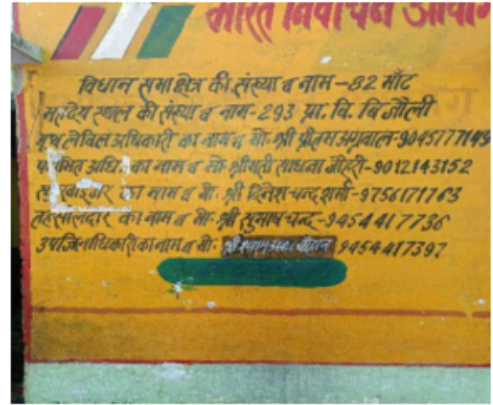 भारत निर्वाचन आयोग
विधान सभा क्षेत्र की संख्या व नाम - 82 माँट
मतदेय स्थल की संख्या व नाम - 293 प्रा. वि. बिजौली
बूथ लेविल अधिकारी का नाम व मो. श्री प्रीतम अग्रवाल - 9045777149
का नाम व मो. श्रीमती साधना जौहरी - 9012143152
का नाम व मो. श्री दिनेश चन्द शर्मा - 9756171763
तहसीलदार का नाम व मो. श्री सुभाष चन्द - 9454417736
उपजिलाधिकारी का नाम व मो. श्री श्याम चौहान 9454417397